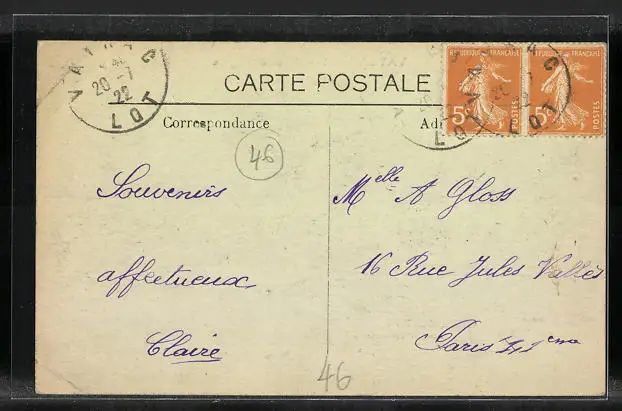 VAYRAC
20 -7
22
LOT
CARTE POSTALE
REPUBLIQUE FRANÇAISE
5c
POSTES
REPUBLIQUE FRANÇAISE
5c
POSTES
LOT
Correspondance
46
Souvenirs
affectueux
Claire
Melle A Gloss
16 Rue Jules Vallès
Paris
46